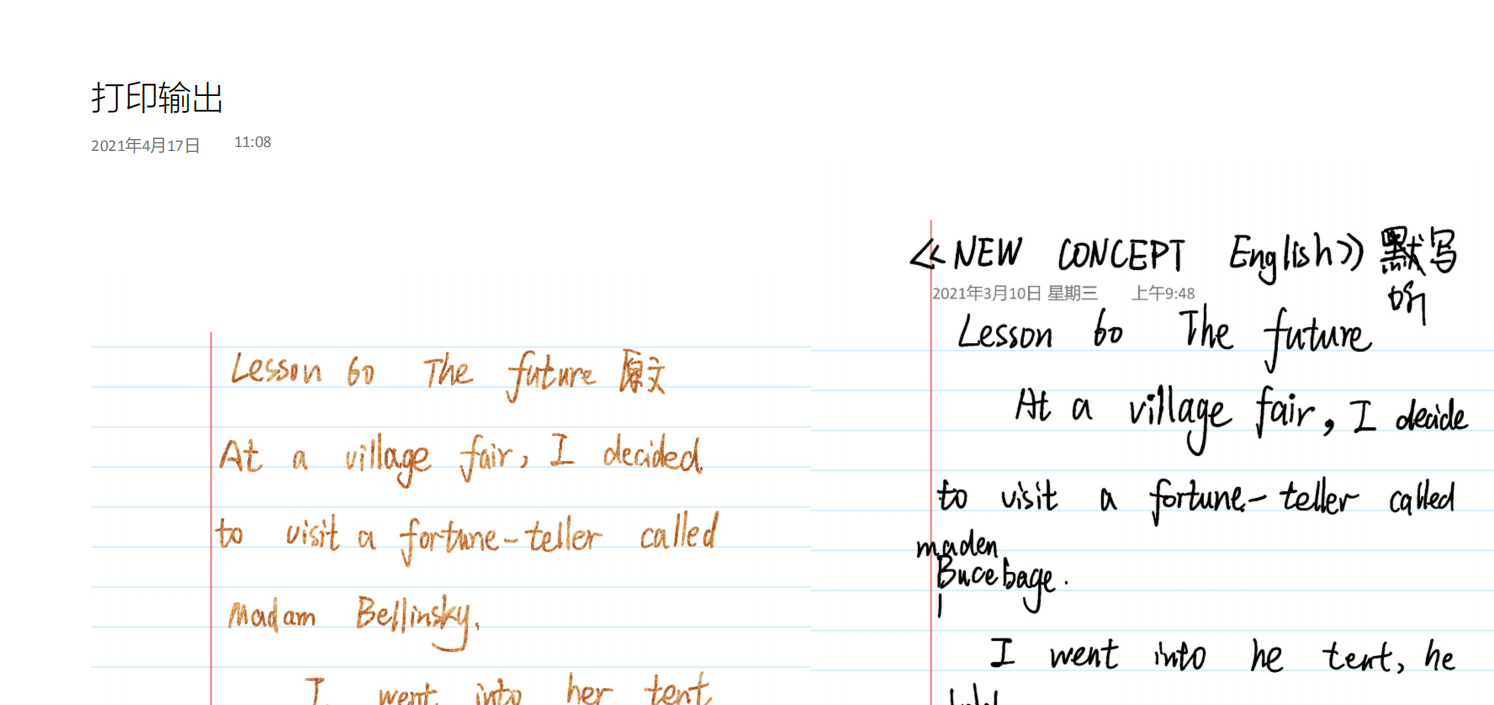 打印输出
2021年4月17日 11:08
Lesson 60 The future 原文
At a village fair, I decided
to visit a fortune-teller called
Madam Bellinsky.
I went into her tent
《NEW CONCEPT English》默写
2021年3月10日 星期三 上午9:48
听
Lesson 60 The future
At a village fair, I decide
to visit a fortune-teller called
maden
Bucebage.
I went into he tent, he